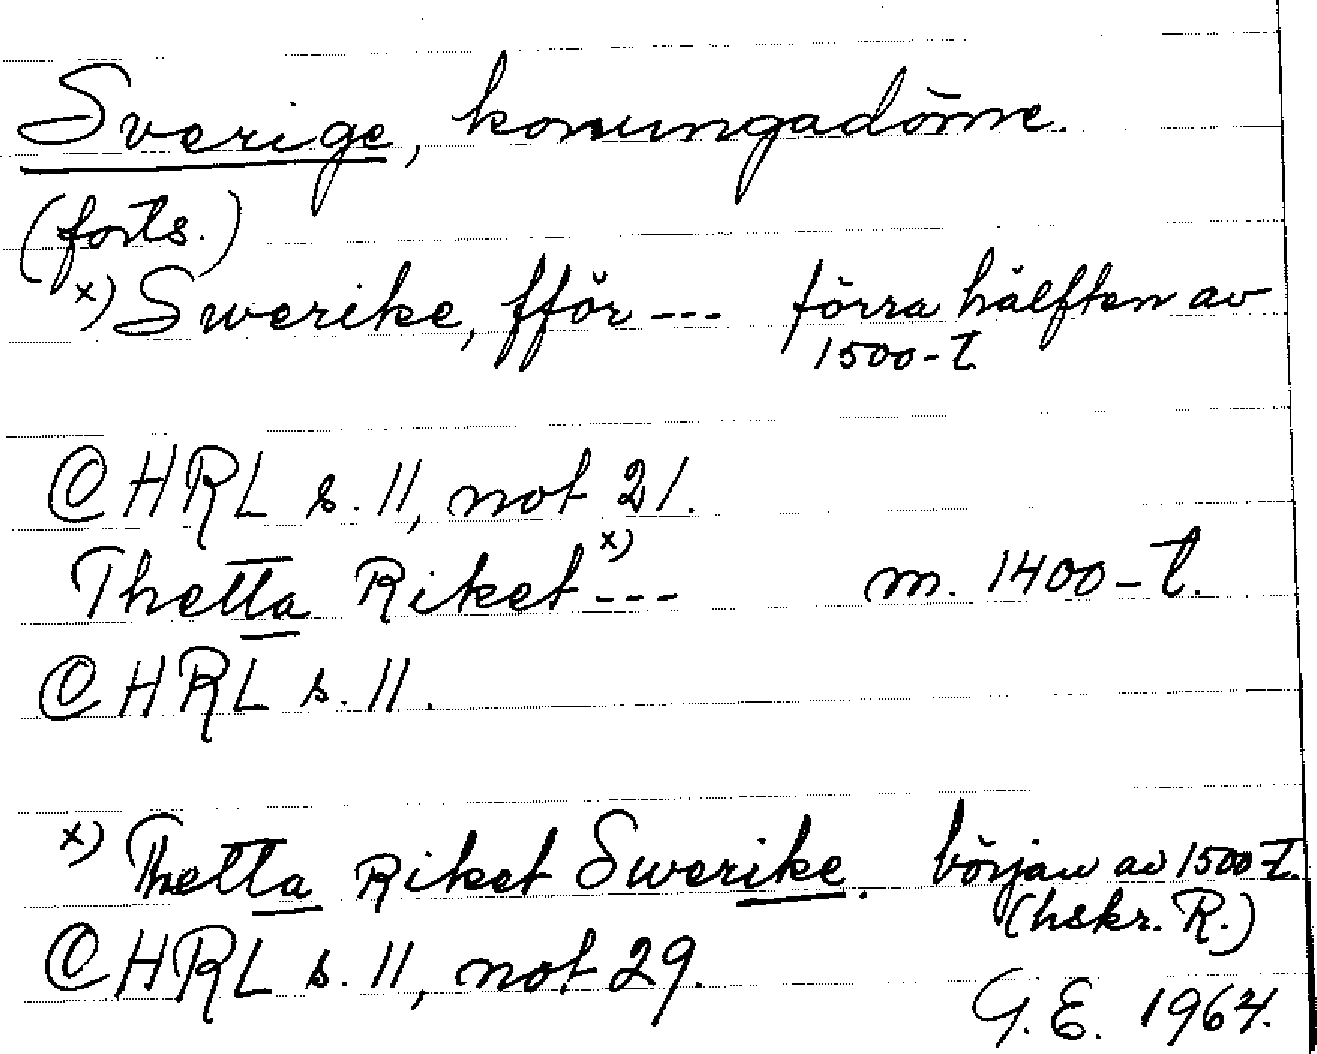 Sverige, konungadöme.
(forts.)
x) Swerike, fför --- förra hälften av
1500-t.
CHRL s. 11, not 21.
Thetta Riket x) --- m. 1400-t.
CHRL s. 11.
x) Thetta Riket Swerike. början av 1500-t.
(hskr. R.)
CHRL s. 11, not 29.
G.E. 1964.